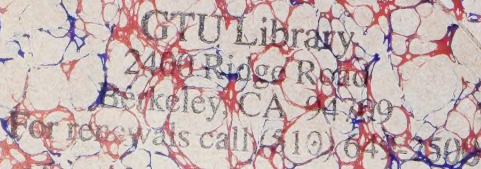 GTU Library
2400 Ridge Road
Berkeley, CA 94709
For renewals call (510) 649-2500